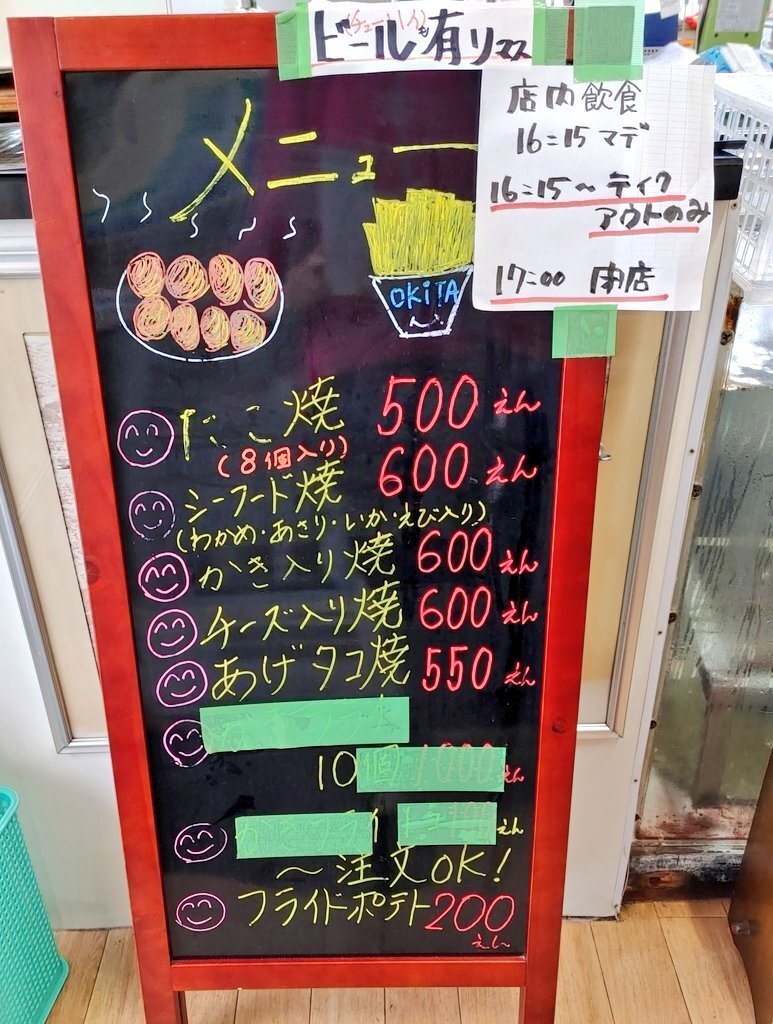 ビール有リマス
(チューハイも)
店内飲食
16:15マデ
16:15〜テイク
アウトのみ
17:00 閉店
メニュー
OKiTA
たこ焼 500えん
(8個入り)
シーフード焼 600えん
(わかめ・あさり・いか・えび入り)
かき入り焼 600えん
チーズ入り焼 600えん
あげタコ焼 550えん
10個 1000えん
えん
〜注文OK!
フライドポテト200
えん